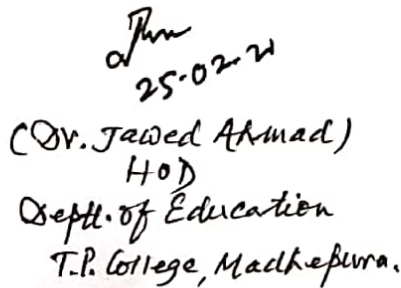 25.02.21
(Dr. Jawed Ahmad)
HOD
Deptt. of Education
T.P. College, Madhepura.